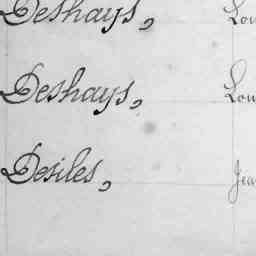 Deshays, Lou
Deshays, Lou
Desiles, Jea